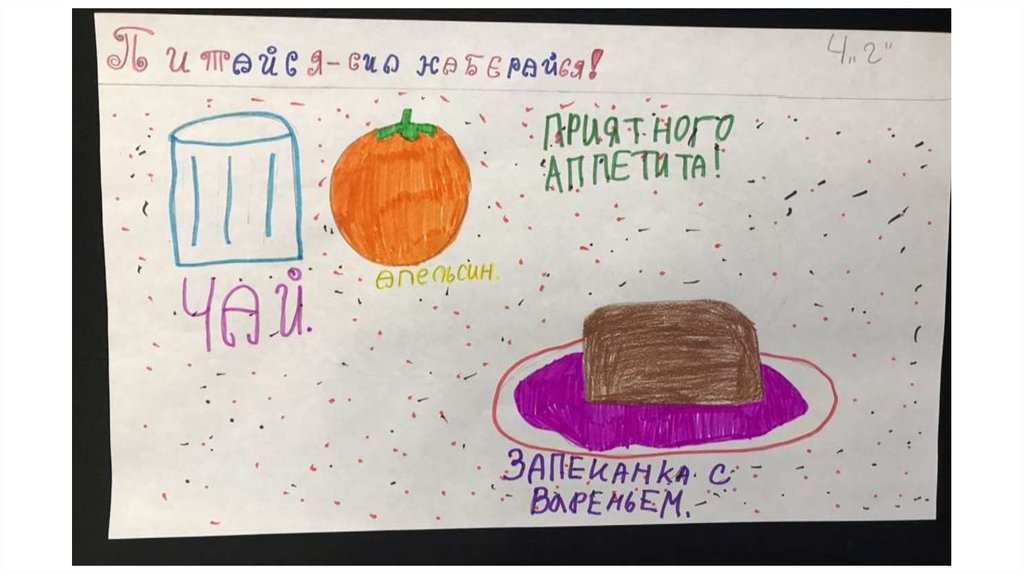 Питайся-сил наберайся!
4 „г"
ПРИЯТНОГО
АППЕТИТА!
апельсин.
ЧАЙ.
ЗАПЕКАНКА С
ВАРЕНЬЕМ.